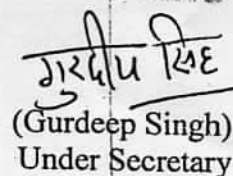 गुरदीप सिंह
(Gurdeep Singh)
Under Secretary